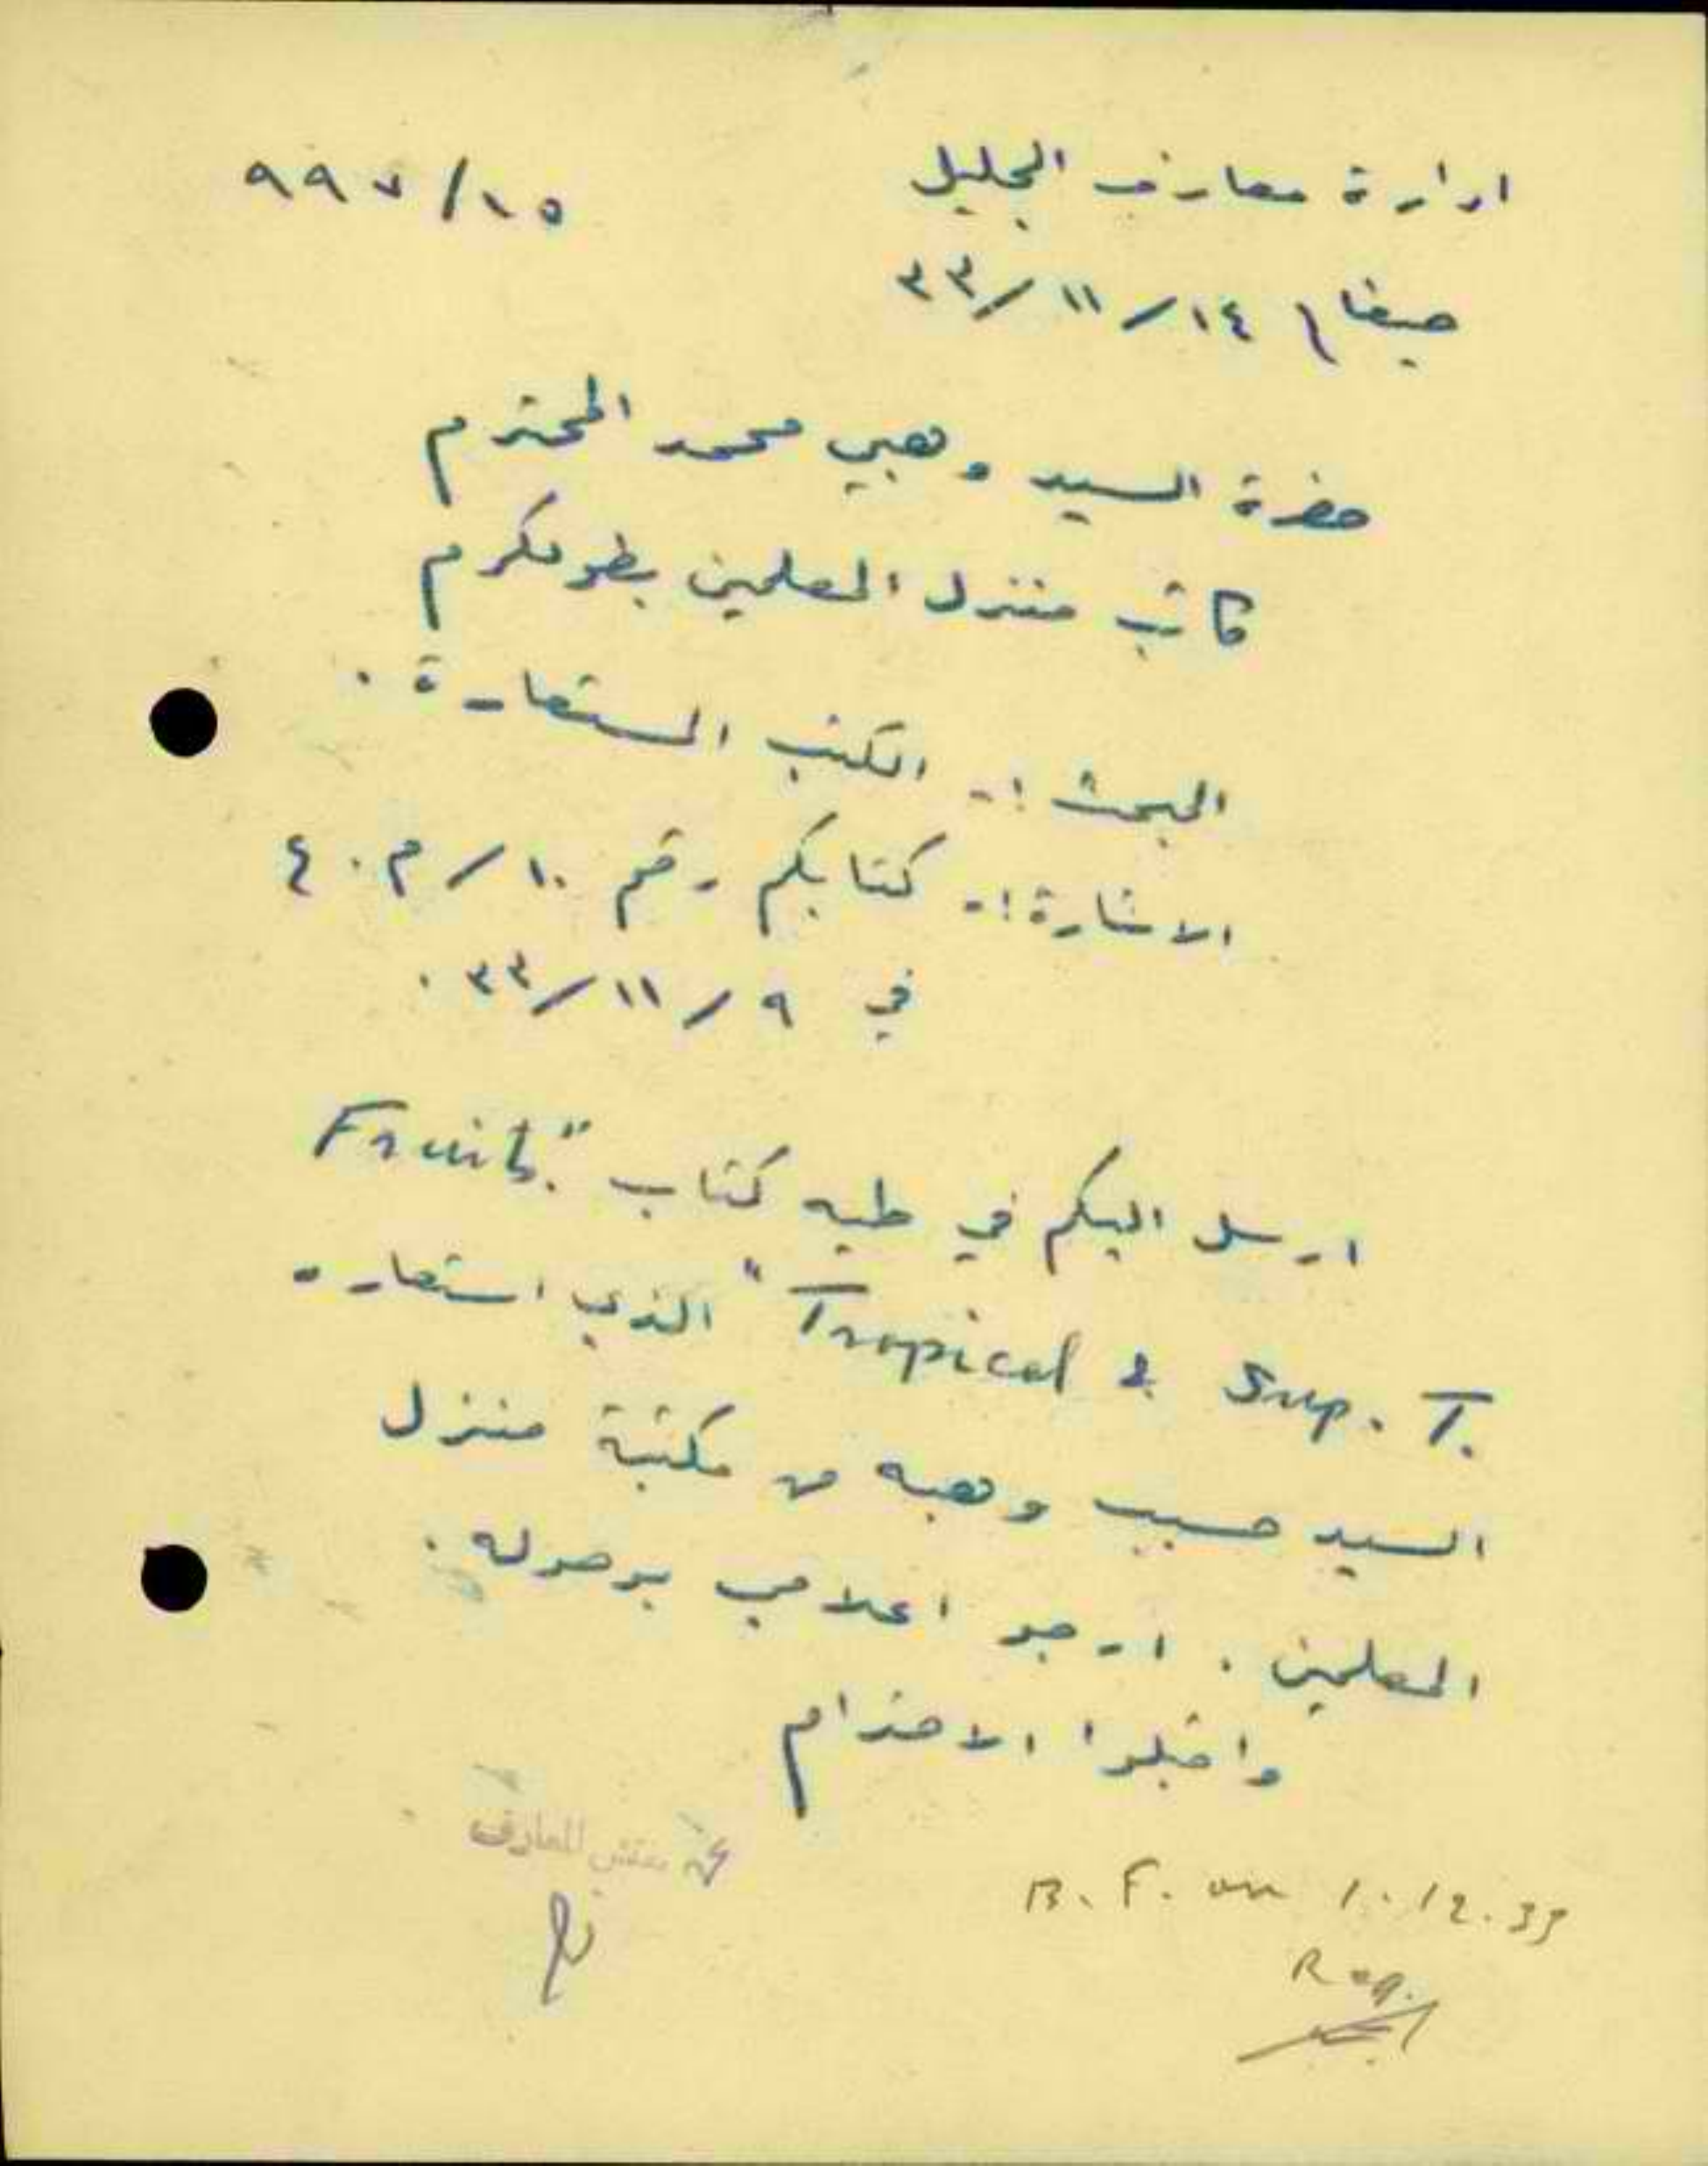 ادارة معارف الجليل ٩٩٧/١٥
حيفا ١٤/١١/٣٣
حضرة السيد وهبي محمد المحترم
كاتب منزل المعلمين بطولكرم
البحث :- الكتب المستعارة .
الاشارة :- كتابكم رقم ١٠/م٤٠
في ٩/١١/٣٣ .
ارسل اليكم في طيه كتاب "Fruits.
Tropical & Sup. T." الذي استعاره
السيد حسيب وهبه من مكتبة منزل
المعلمين . ارجو اعلامي بوصوله .
واقبلوا الاحترام
عن مفتش المعارف
B. F. on 1.12.33
Reg.